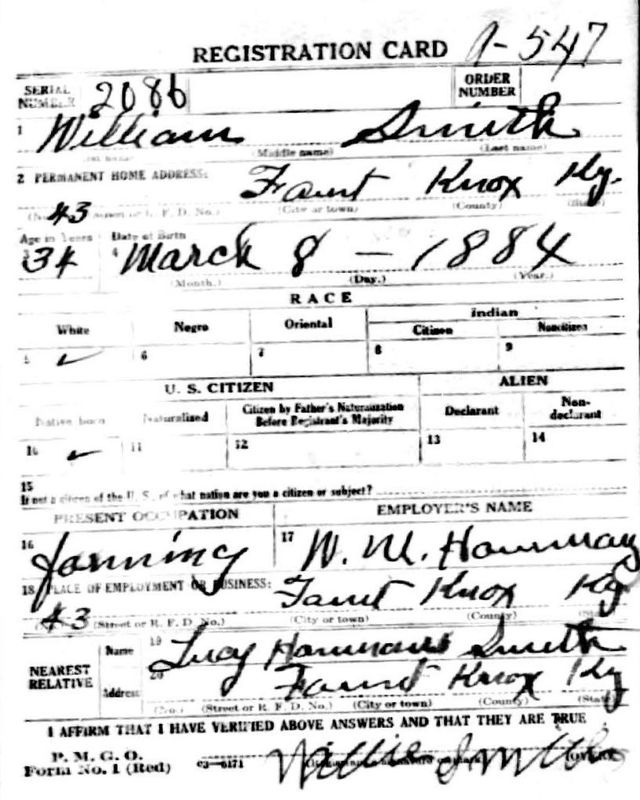 REGISTRATION CARD 1-547
SERIAL NUMBER 2086 ORDER NUMBER
1 William Smith
(Middle name) (Last name)
2 PERMANENT HOME ADDRESS: Faunt Knox Ky.
43 (No.) (Street or R. F. D. No.) (City or town) (County) (State)
Age in Years Date of Birth
3 34 4 March 8 - 1884
(Month.) (Day.) (Year.)
RACE
White Negro Oriental Indian
Citizen Noncitizen
5 ✓ 6 7 8 9
U. S. CITIZEN ALIEN
Native born Naturalized Citizen by Father's Naturalization Before Registrant's Majority Declarant Non-declarant
10 ✓ 11 12 13 14
15
If not a citizen of the U. S., of what nation are you a citizen or subject?
PRESENT OCCUPATION EMPLOYER'S NAME
16 17 W. M.
18 PLACE OF EMPLOYMENT OR BUSINESS: Faunt Knox Ky
43 (No.) (Street or R. F. D. No.) (City or town) (County) (State)
NEAREST RELATIVE Name 19 Lucy Smith
Address 20 Faunt Knox Ky
(No.) (Street or R. F. D. No.) (City or town) (County) (State)
I AFFIRM THAT I HAVE VERIFIED ABOVE ANSWERS AND THAT THEY ARE TRUE
P. M. G. O.
Form No. 1 (Red) c3-6171 Willie Smith (OVER)